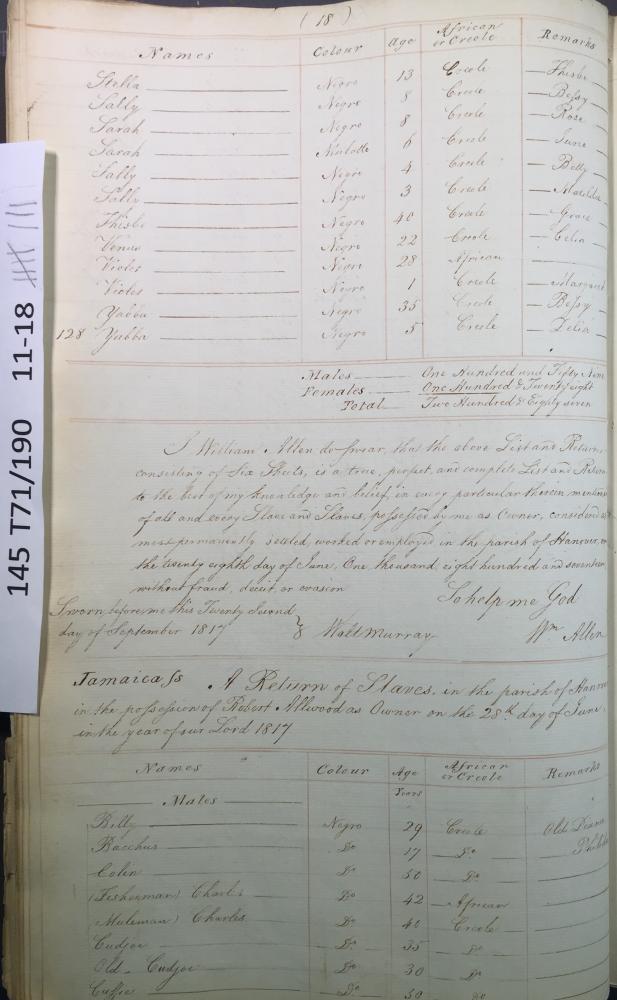 (18)
Names Colour Age African or Creole Remarks
Stella Negro 13 Creole Thisbe
Sally Negro 8 Creole Bessy
Sarah Negro 8 Creole Rose
Sarah Mulatto 6 Creole Jane
Sally Negro 4 Creole Betty
Sally Negro 3 Creole Matilda
Thisbe Negro 40 Creole Grace
Venus Negro 22 Creole Celia
Violet Negro 28 African
Violet Negro 1 Creole Margaret
Yabba Negro 35 Creole Bessy
128 Yabba Negro 5 Creole Delia
Males One Hundred and Fifty Nine
Females One Hundred & Twenty eight
Total Two Hundred & Eighty seven
I William Allen do swear, that the above List and Return
consisting of Six Sheets, is a true, perfect, and complete List and Return
to the best of my knowledge and belief, in every particular therein mentioned
of all and every Slave and Slaves, possessed by me as Owner, considered as
most permanently settled, worked or employed in the parish of Hanover, on
the twenty eighth day of June, One thousand, eight hundred and seventeen
without fraud, deceit, or evasion
So help me God
Sworn before me this Twenty Second
day of September 1817 } Walt Murray Wm Allen
Jamaica Ss A Return of Slaves, in the parish of Hanover
in the possession of Robert Allwood as Owner on the 28th day of June,
in the year of our Lord 1817
Names Colour Age African or Creole Remarks
Years
Males
Billy Negro 29 Creole Old
Bacchus Do 17 Do
Colin Do 50 Do
(Fisherman) Charles Do 42 African
(Muleman) Charles Do 40 Creole
Cudjoe Do 35 Do
Old Cudjoe Do 30 Do
Cuffee Do 50 Do
145 T71/190 11-18